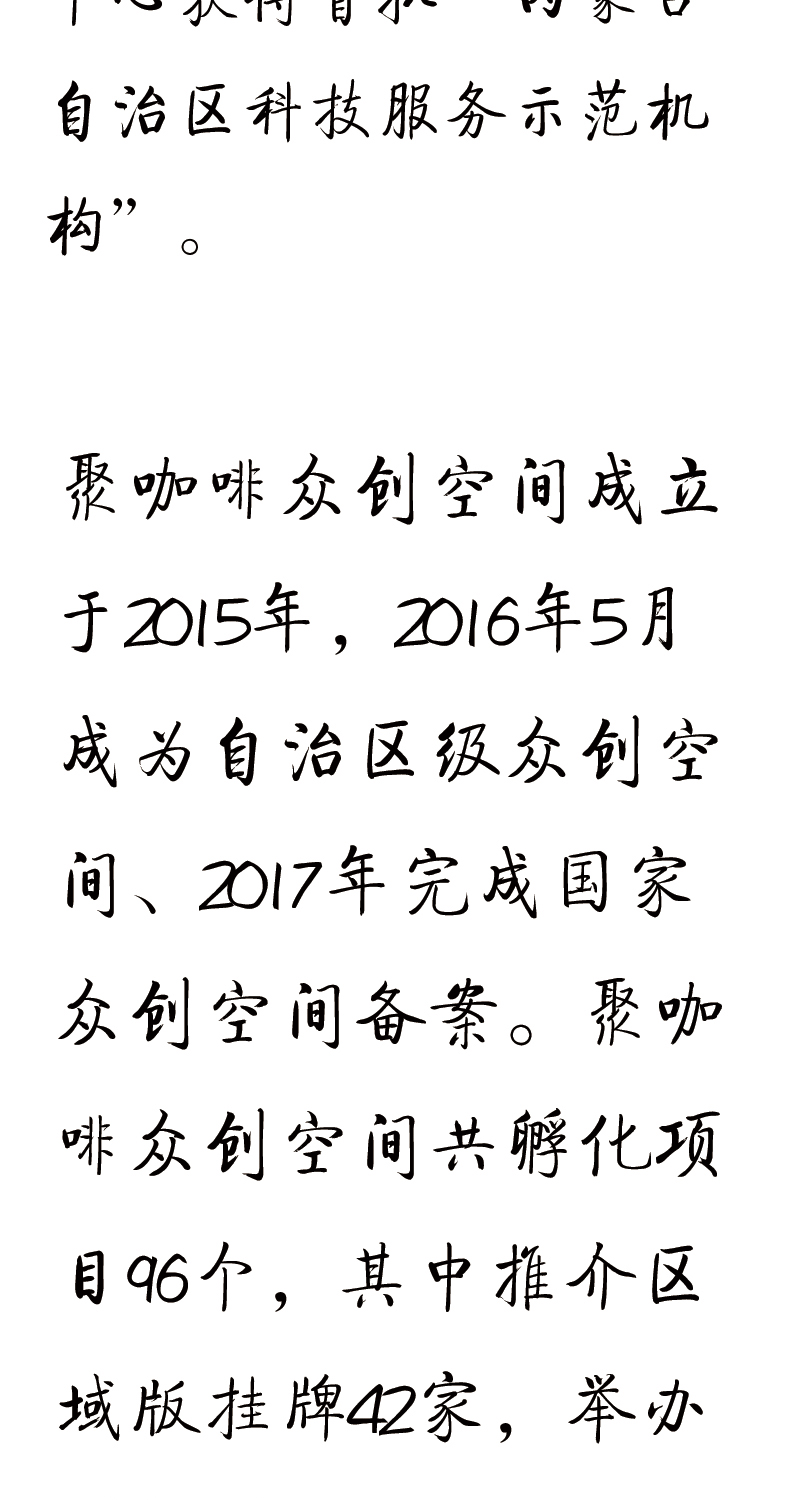 中心获得首批“内蒙古
自治区科技服务示范机
构”。
聚咖啡众创空间成立
于2015年，2016年5月
成为自治区级众创空
间、2017年完成国家
众创空间备案。聚咖
啡众创空间共孵化项
目96个，其中推介区
域版挂牌42家，举办